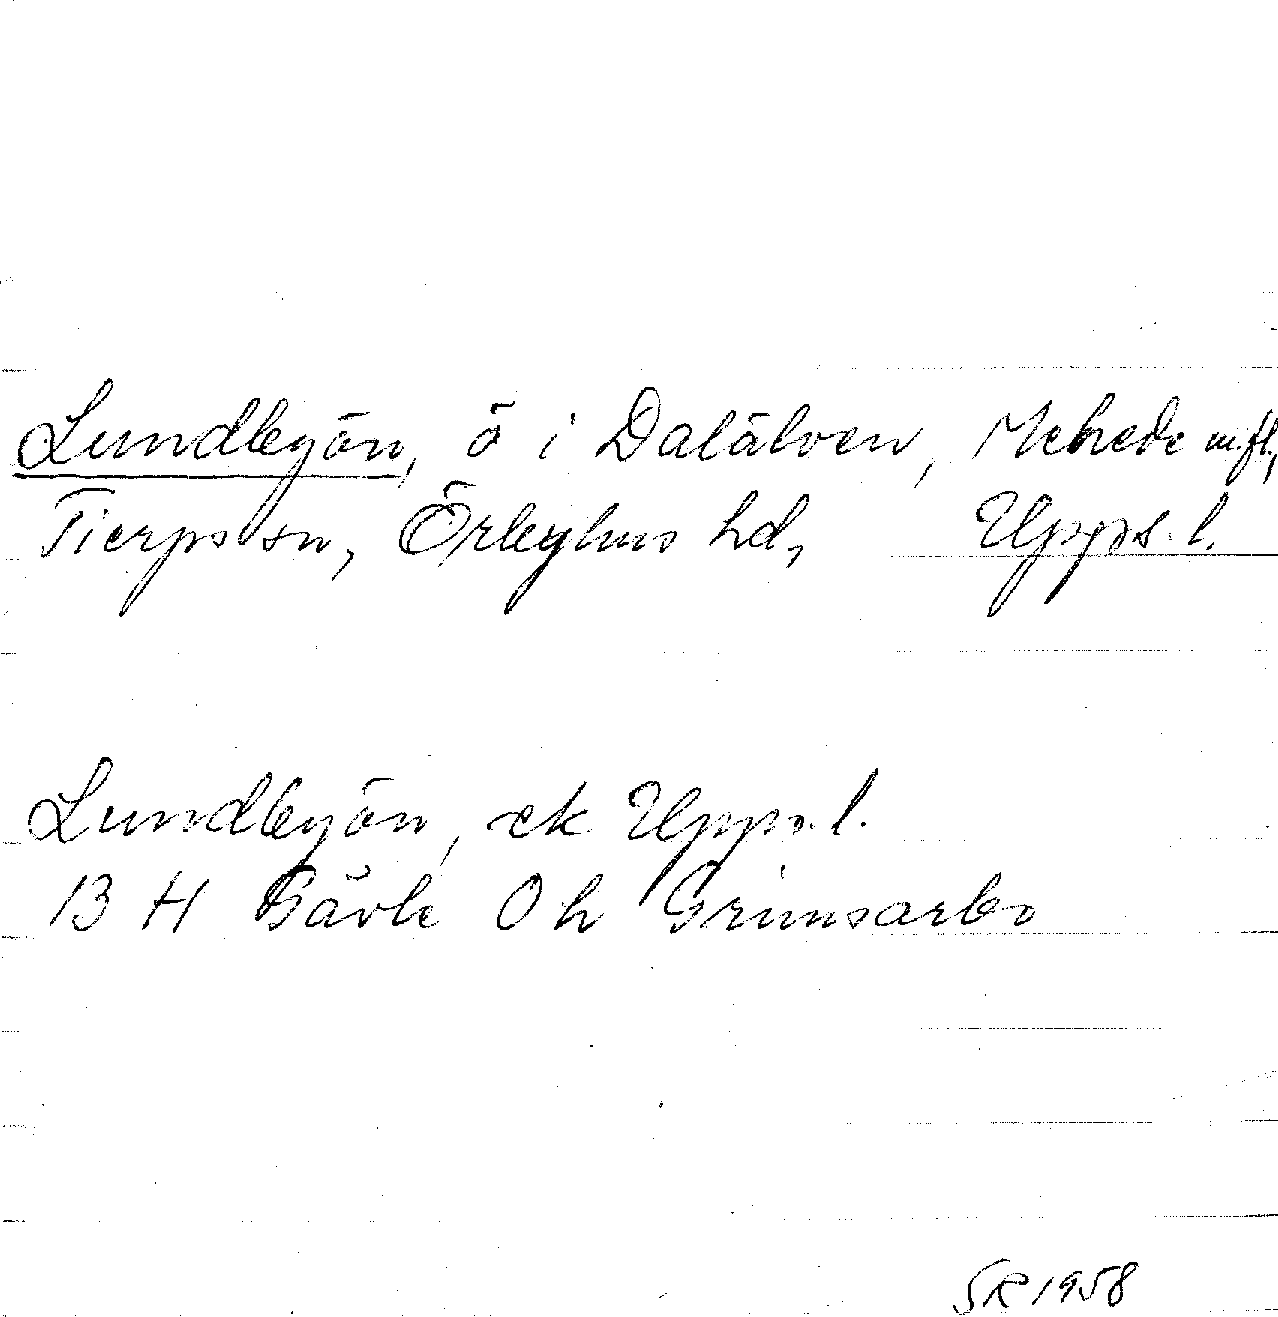 Lundbyön, ö i Dalälven, Mehede m.fl.,
Tierps sn, Örbyhus hd, Upps. l.
Lundbyön, ek Upps. l.
13 H Gävle 0 h Grimsarbo
SR 1958